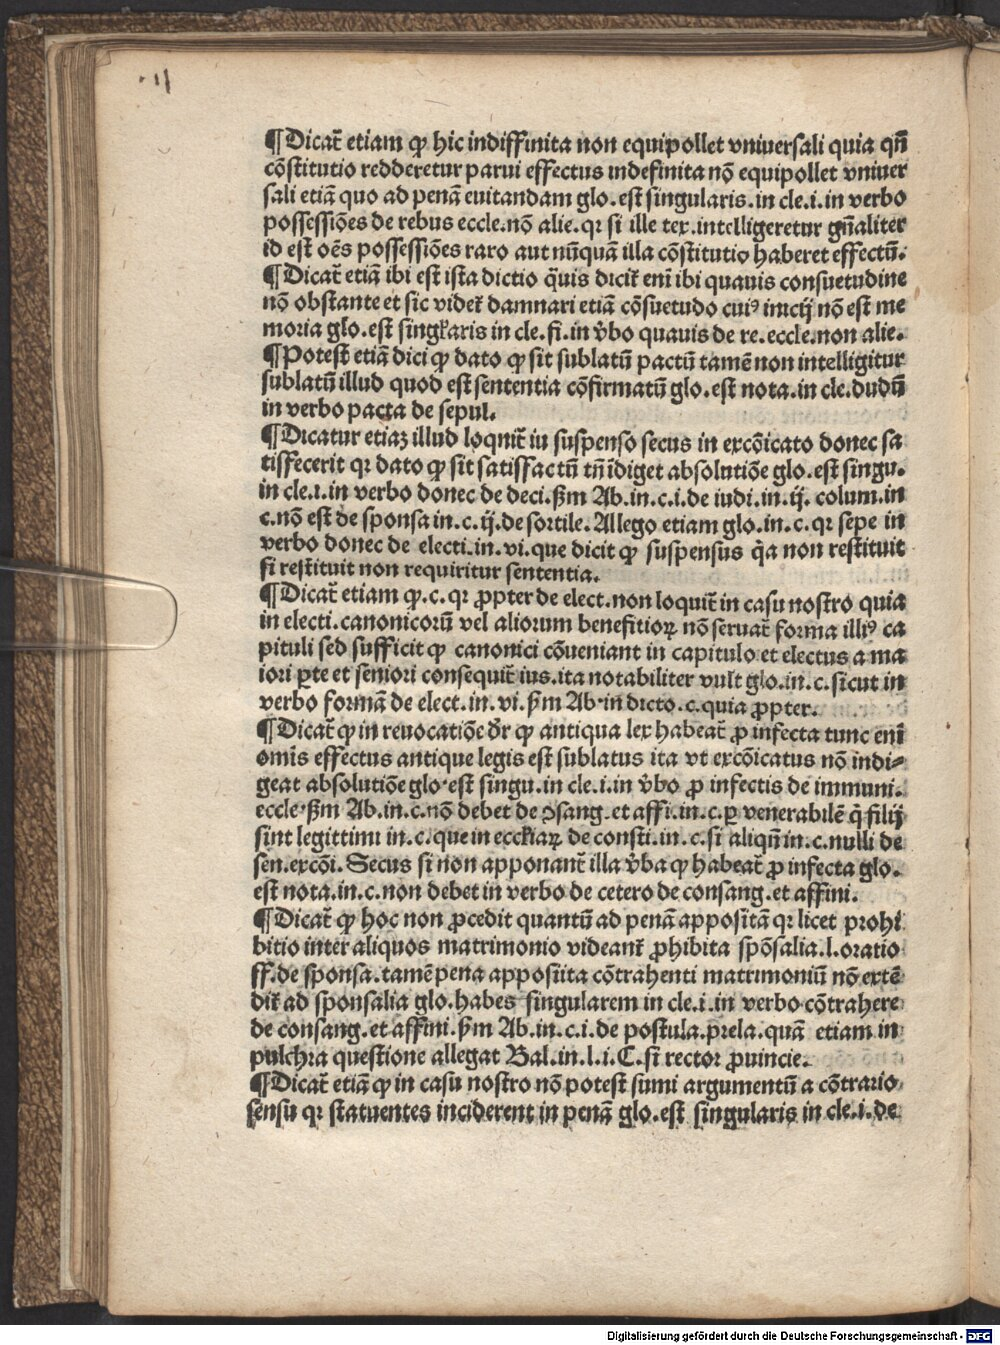 11
¶Dicat̃ etiam ꝙ hic indiffinita non equipollet vniuersali quia qñ
cõstitutio redderetur parui effectus indefinita nõ equipollet vniuer
sali etiã quo ad penã euitandam glo.est singularis.in cle.i.in verbo
possessiões de rebus eccle.nõ alie.qr si ille tex.intelligeretur gñaliter
id est oẽs possessiões raro aut nũquã illa cõstitutio haberet effectũ.
¶Dicat̃ etiã ibi est ista dictio q̃uis dicit̃ eni ibi quauis consuetudine
nõ obstante et sic videt̃ damnari etiã cõsuetudo cuiꝰ inicij nõ est me
moria glo.est singl̃aris in cle.fi.in v̾bo quauis de re.eccle.non alie.
¶Potest etiã dici ꝙ dato ꝙ sit sublatũ pactũ tamẽ non intelligitur
sublatũ illud quod est sententia cõfirmatũ glo.est nota.in cle.dudũ
in verbo pacta de sepul.
¶Dicatur etiaꝫ illud loqnit̃ iu suspenso secus in excõicato donec sa
tisfecerit qr dato ꝙ sit satisfactũ tñ ĩdiget absolutiõe glo.est singu.
in cle.i.in verbo donec de deci.ẞm Ab.in.c.i.de iudi.in.ij. colum.in
c.nõ est de sponsa in.c.ij.de sortile.Allego etiam glo.in.c.qr sepe in
verbo donec de electi.in.vi.que dicit ꝙ suspensus q̃a non restituit
si restituit non requiritur sententia.
¶Dicat̃ etiam ꝙ.c.qr ꝓpter de elect.non loquit̃ in casu nostro quia
in electi.canonicorũ vel aliorum benefitioꝝ nõ seruat̃ forma illiꝰ ca
pituli sed sufficit ꝙ canonici cõueniant in capitulo et electus a ma
iori ꝑte et seniori consequit̃ ius.ita notabiliter vult glo.in.c.sicut in
verbo formã de elect.in.vi.ẞm Ab.in dicto.c.quia ꝓpter.
¶Dicat̃ ꝙ in reuocatiõe d̾r ꝙ antiqua lex habeat̃ ꝓ infecta tunc eni
omĩs effectus antique legis est sublatus ita vt excõicatus nõ indi⸗
geat absolutiõe glo.est singu.in cle.i.in v̾bo ꝓ infectis de immuni.
eccle.ẞm Ab.in.c.nõ debet de ꝯsang.et affi.in.c.ꝑ venerabilẽ q̃ filij
sint legittimi in.c.que in eccl̃iaꝝ de consti.in.c.si aliqñ in.c.nulli de
sen.excõi.Secus si non apponant̃ illa v̾ba ꝙ habeat̃ ꝓ infecta glo.
est nota.in.c.non debet in verbo de cetero de consang.et affini.
¶Dicat̃ ꝙ hoc non ꝓcedit quantũ ad penã appositã qr licet prohi
bitio inter aliquos matrimonio videant̃ ꝓhibita spõsalia.l.oratio
ff.de sponsa.tamẽ pena apposiita cõtrahenti matrimoniũ nõ extẽ
dit̃ ad sponsalia glo.habes singularem in cle.i.in verbo cõtrahere
de consang.et affini.ẞm Ab.in.c.i.de postula.prela.quã etiam in
pulchra questione allegat Bal.in.l.i.C.si rector ꝓuincie.
¶Dicat̃ etiã ꝙ in casu nostro nõ potest sumi argumentũ a cõtrario
sensu qr statuentes inciderent in penã glo.est singularis in cle.i.de
Digitalisierung gefördert durch die Deutsche Forschungsgemeinschaft - DFG